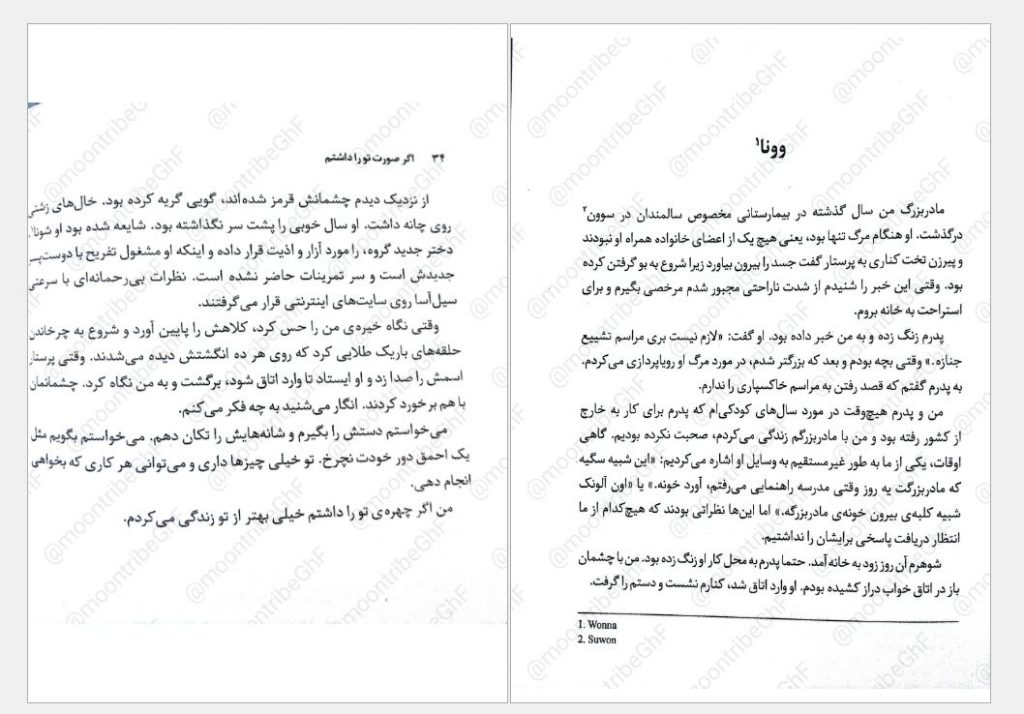 ۳۴ اگر صورت تو را داشتم
از نزدیک دیدم چشمانش قرمز شده‌اند، گویی گریه کرده بود. خال‌های زشتی
روی چانه داشت. او سال خوبی را پشت سر نگذاشته بود. شایعه شده بود او شونا۱،
دختر جدید گروه، را مورد آزار و اذیت قرار داده و اینکه او مشغول تفریح با دوست‌پسر
جدیدش است و سر تمرینات حاضر نشده است. نظرات بی‌رحمانه‌ای با سرعتی
سیل‌آسا روی سایت‌های اینترنتی قرار می‌گرفتند.
وقتی نگاه خیره‌ی من را حس کرد، کلاهش را پایین آورد و شروع به چرخاندن
حلقه‌های باریک طلایی کرد که روی هر ده انگشتش دیده می‌شدند. وقتی پرستار
اسمش را صدا زد و او ایستاد تا وارد اتاق شود، برگشت و به من نگاه کرد. چشمانمان
با هم برخورد کردند. انگار می‌شنید به چه فکر می‌کنم.
می‌خواستم دستش را بگیرم و شانه‌هایش را تکان دهم. می‌خواستم بگویم مثل
یک احمق دور خودت نچرخ. تو خیلی چیزها داری و می‌توانی هر کاری که بخواهی
انجام دهی.
من اگر چهره‌ی تو را داشتم خیلی بهتر از تو زندگی می‌کردم.
وونا۱
مادربزرگ من سال گذشته در بیمارستانی مخصوص سالمندان در سوون۲
درگذشت. او هنگام مرگ تنها بود، یعنی هیچ یک از اعضای خانواده همراه او نبودند
و پیرزن تخت کناری به پرستار گفت جسد را بیرون بیاورد زیرا شروع به بو گرفتن کرده
بود. وقتی این خبر را شنیدم از شدت ناراحتی مجبور شدم مرخصی بگیرم و برای
استراحت به خانه بروم.
پدرم زنگ زده و به من خبر داده بود. او گفت: «لازم نیست بری مراسم تشییع
جنازه.» وقتی بچه بودم و بعد که بزرگتر شدم، در مورد مرگ او رویاپردازی می‌کردم.
به پدرم گفتم که قصد رفتن به مراسم خاکسپاری را ندارم.
من و پدرم هیچ‌وقت در مورد سال‌های کودکی‌ام که پدرم برای کار به خارج
از کشور رفته بود و من با مادربزرگم زندگی می‌کردم، صحبت نکرده بودیم. گاهی
اوقات، یکی از ما به طور غیرمستقیم به وسایل او اشاره می‌کردیم: «این شبیه سگیه
که مادربزرگت یه روز وقتی مدرسه راهنمایی می‌رفتم، آورد خونه.» یا «اون آلونک
شبیه کلبه‌ی بیرون خونه‌ی مادربزرگه.» اما این‌ها نظراتی بودند که هیچ‌کدام از ما
انتظار دریافت پاسخی برایشان را نداشتیم.
شوهرم آن روز زود به خانه آمد. حتما پدرم به محل کار او زنگ زده بود. من با چشمان
باز در اتاق خواب دراز کشیده بودم. او وارد اتاق شد، کنارم نشست و دستم را گرفت.
1. Wonna
2. Suwon
@moontribeGhF